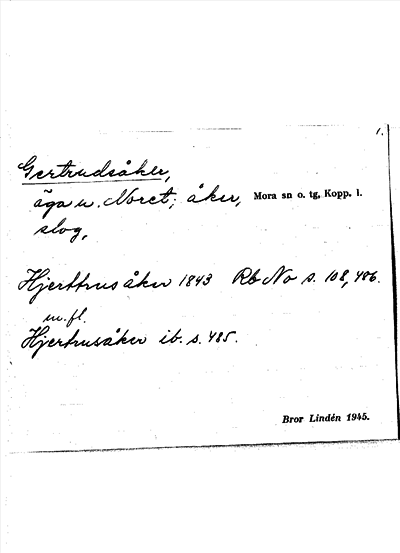 1.
Gertrudsåker,
äga u. Noret; åker, Mora sn o. tg, Kopp. l.
slog.
Hjerttrusåker 1843 Rb No s. 108, 486.
m. fl.
Hjertrusåker ib. s. 485.
Bror Lindén 1945.